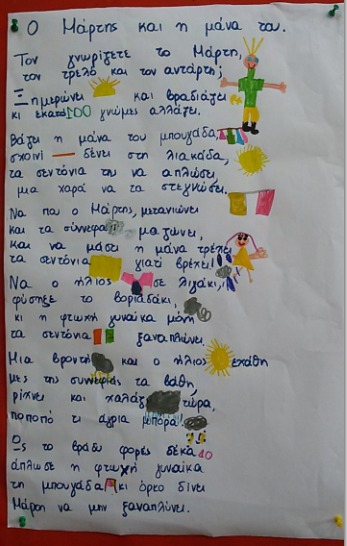 Ο Μάρτης και η μάνα του.
Τον γνωρίζετε το Μάρτη,
τον τρελό και τον αντάρτη;
Ξημερώνει και βραδιάζει
κι εκατό 100 γνώμες αλλάζει.
Βάζει η μάνα του μπουγάδα,
σχοινί δένει στη λιακάδα,
τα σεντόνια της να απλώσει,
μια χαρά να τα στεγνώσει.
Να που ο Μάρτης μετανιώνει
και τα σύννεφα μαζώνει,
και να μάσει η μάνα τρέχει
τα σεντόνια γιατί βρέχει!
Να ο ήλιος σε λιγάκι,
φύσηξε το βοριαδάκι,
κι η φτωχή γυναίκα μόνη
τα σεντόνια ξαναπλώνει.
Μια βροντή και ο ήλιος εχάθη
μες της συννεφιάς τα βάθη
ρίχνει και χαλάζι τώρα,
ποποπό τι άγρια μπόρα!
Ως το βράδυ φορές δέκα 10
άπλωσε η φτωχή γυναίκα
τη μπουγάδα κι όρκο δίνει
Μάρτη να μην ξαναπλύνει.